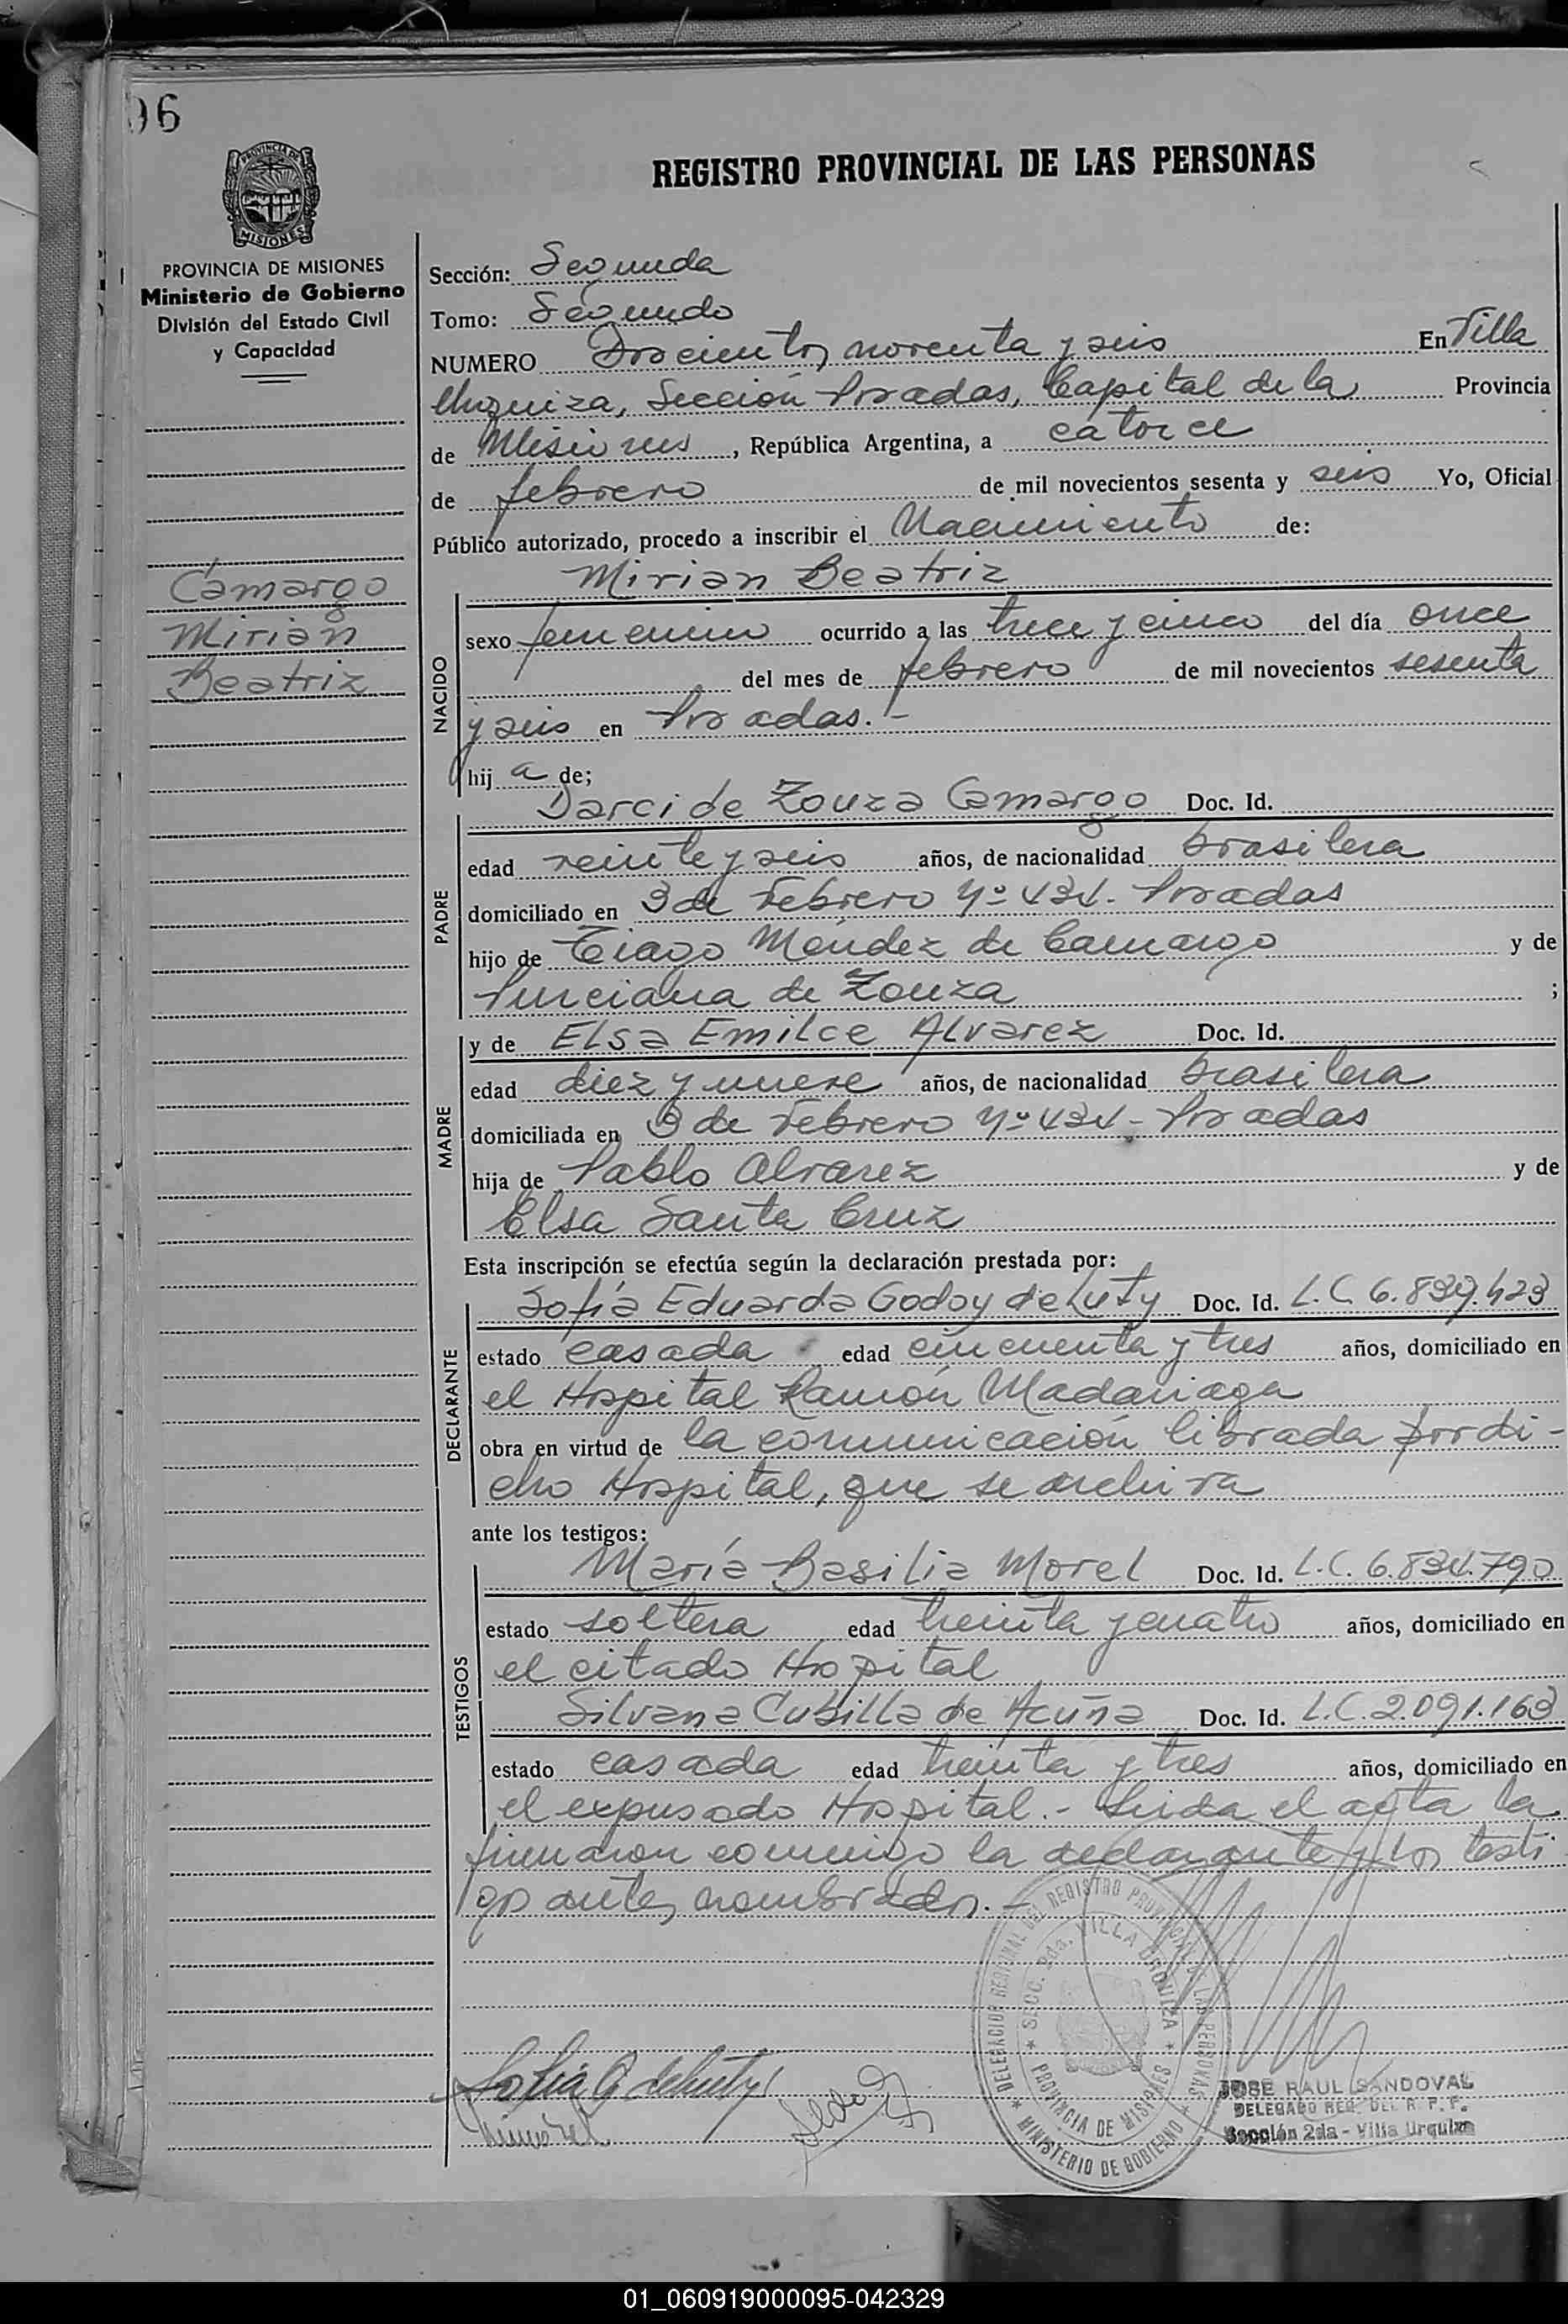 96
REGISTRO PROVINCIAL DE LAS PERSONAS
PROVINCIA DE
MISIONES
PROVINCIA DE MISIONES
Ministerio de Gobierno
División del Estado Civil
y Capacidad
Camargo
Mirian
Beatriz
Sección: Segunda
Tomo: Segundo
NUMERO Doscientos noventa y seis En Villa
Urquiza, Sección Posadas, Capital de la Provincia
de Misiones, República Argentina, a catorce
de febrero de mil novecientos sesenta y seis Yo, Oficial
Público autorizado, procedo a inscribir el Nacimiento de:
NACIDO
Mirian Beatriz
sexo femenino ocurrido a las trece y cinco del día once
del mes de febrero de mil novecientos sesenta
y seis en Posadas.-
hij a de;
PADRE
Darci de Zouza Camargo Doc. Id.
edad veinte y seis años, de nacionalidad brasilera
domiciliado en 3 de Febrero Nº 434. Posadas
hijo de Tiago Méndez de Camargo y de
de Zouza ;
MADRE
y de Elsa Emilce Alvarez Doc. Id.
edad diez y nueve años, de nacionalidad brasilera
domiciliada en 3 de Febrero Nº 434 - Posadas
hija de Pablo Alvarez y de
Elsa Santa Cruz
Esta inscripción se efectúa según la declaración prestada por:
DECLARANTE
Sofía Eduarda Godoy de Luty Doc. Id. L.C. 6.839.423
estado casada edad cincuenta y tres años, domiciliado en
el Hospital Ramón Madariaga
obra en virtud de la comunicación librada por di-
cho Hospital, que se archiva
ante los testigos:
TESTIGOS
María Basilia Morel Doc. Id. L.C. 6.834.790
estado soltera edad treinta y cuatro años, domiciliado en
el citado Hospital
Silvana Cubilla de Acuña Doc. Id. L.C. 2.091.163
estado casada edad treinta y tres años, domiciliado en
el expresado Hospital.- Leida el acta la
firmaron conmigo la declarante y los testi
gos antes nombrados.-
DELEGACION REGIONAL DEL REGISTRO PROVINCIAL DE LAS PERSONAS
SECC. 2da. VILLA URQUIZA
PROVINCIA DE MISIONES
MINISTERIO DE GOBIERNO
Sofía G de Luty
JOSE RAUL SANDOVAL
DELEGADO REG. DEL R. P. P.
Sección 2da - Villa Urquiza
01_060919000095-042329